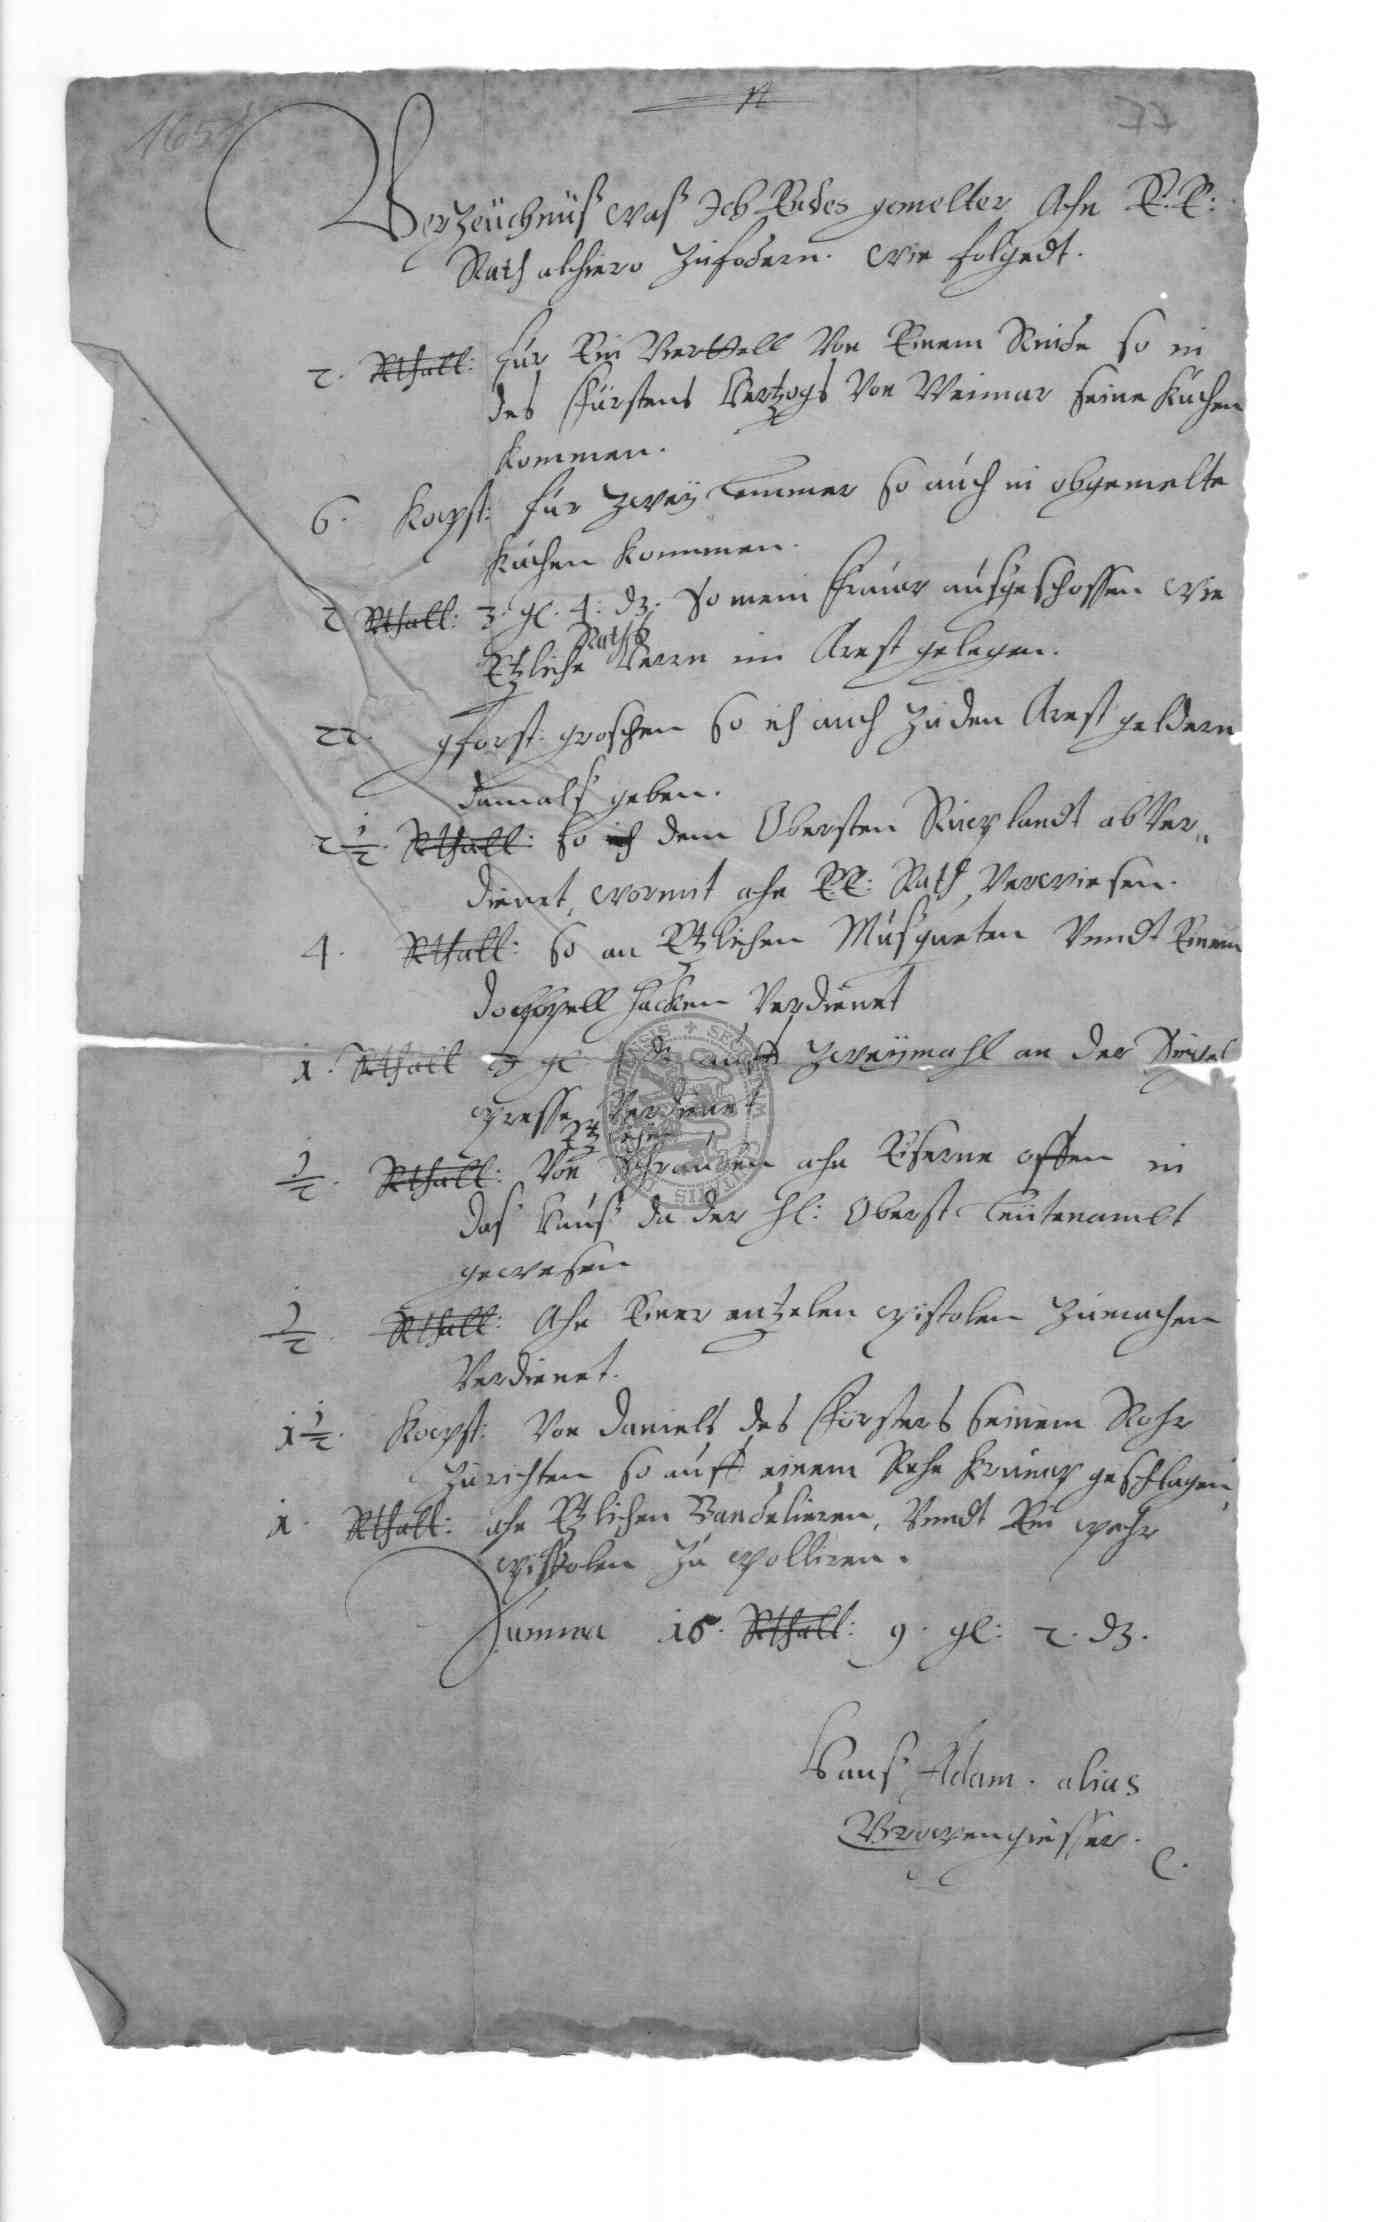 1654
77
Verzeüchnüß waß Ich Endes gemelter Ahn E.E:
Rath alhiero zufodern. wie folgedt.
2. Rthall: für Ein Verttell Von Einem Rinde so in
des Fürstens Hertzogs Von Weimar seine Küchen
kommen.
6. Kopst: für zweÿ Lemmer so auch in obgemelte
Küchen kommen.
2 Rthall: 3. gl. 4. dz. So mein Frauw ausgeschossen wie
Etzliche Raths Herrn im Arest gelegen.
22. groschen so ich auch zu den Arest geldern
damalß geben.
2 1/2. Rthall: so ich dem Obersten abver„
dienet, wormit ahn E.E: Rath, Verwiesen.
4. Rthall: so an Etzlichen Musqueten Vundt Einem
doppell hacken Verdienet
1. Rthall 3 gl zweÿmahl an der
presse Verdienet
1/2. Rthall: Von Etzlichen Schrauben ahn Eiserne offen in
das Hauß da der Hl: Oberst Leütenamht
gewesen
1/2. Rthall: Ahn Einer entzelen pistolen zumachen
Verdienet.
1 1/2. Kopst: Von Daniels des Försters seinem Rohr
zurichten so auff einem Rehe krump geschlagen
1. Rthall: ahn Etzlichen Bandelieren, Vundt Ein pahr
pistolen zu polliren.
Summa 16. Rthall: 9. gl: 2. dz.
Hanß Adam. alias
Gropengiesser.